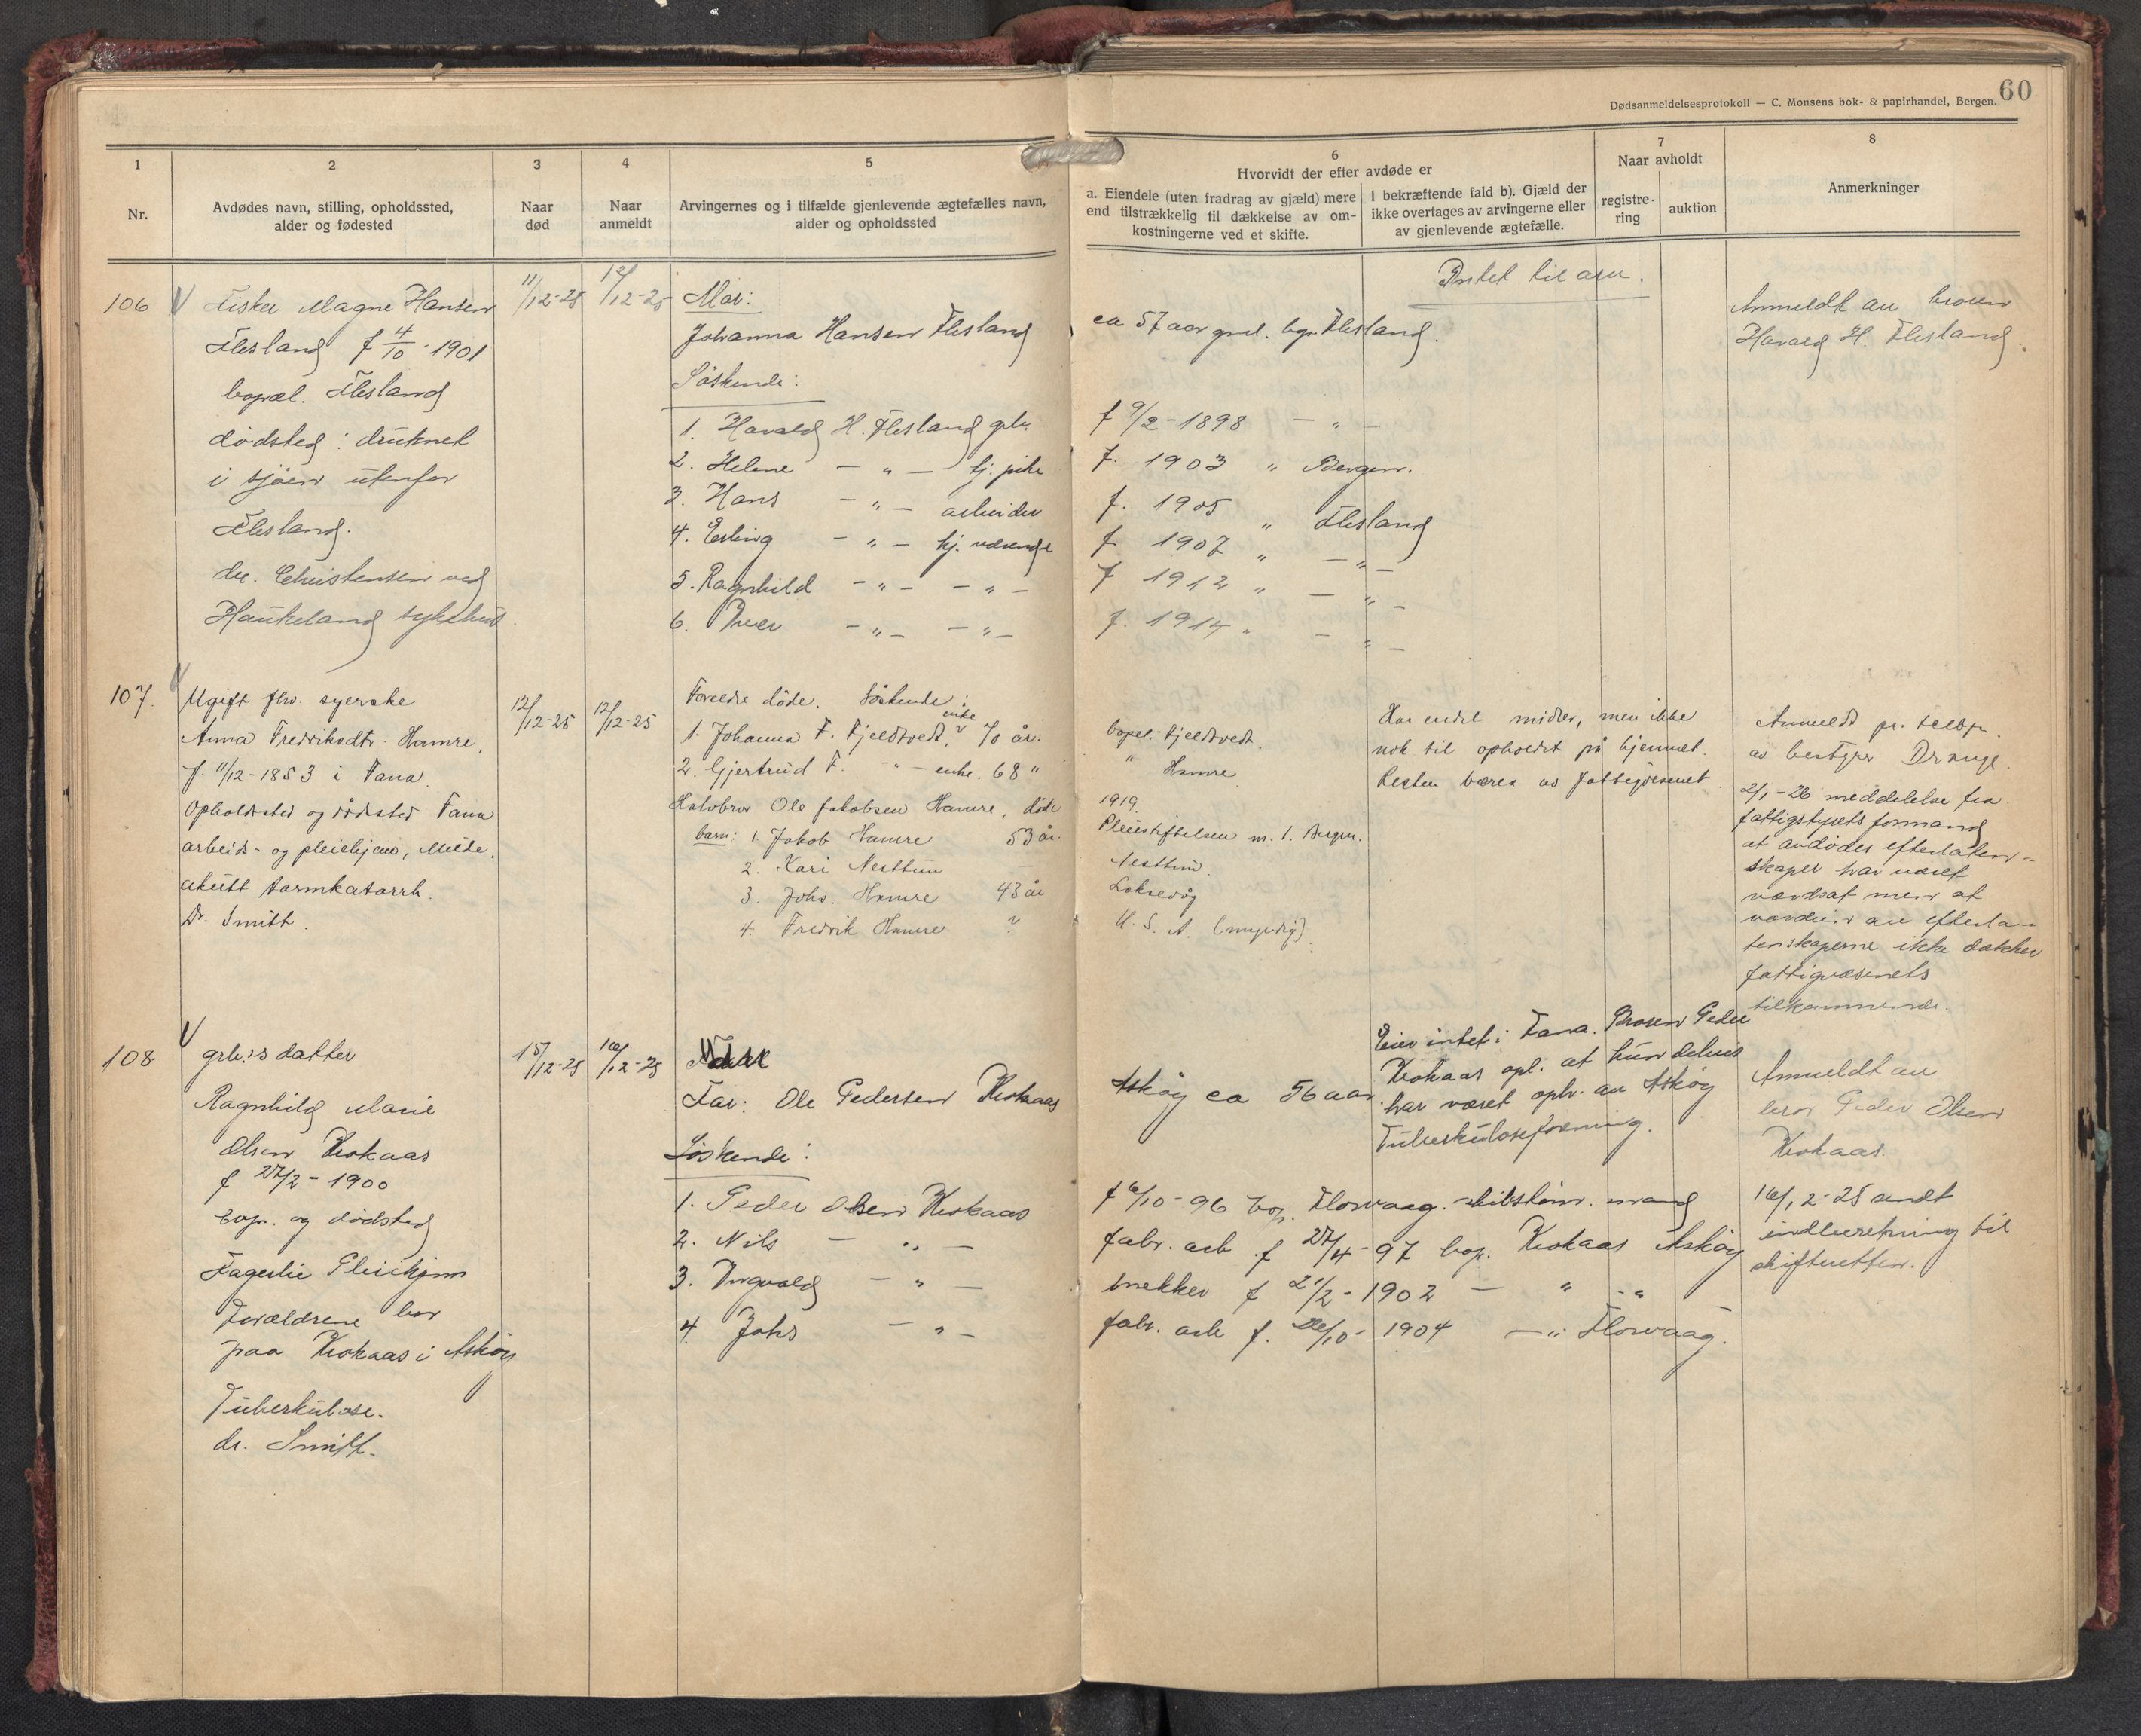 60
Dødsanmeldelsesprotokoll — C. Monsens bok- & papirhandel, Bergen.
1
2
3
4
5
6
7
8
Nr.
Avdødes navn, stilling, opholdssted,
alder og fødested
Naar
død
Naar
anmeldt
Arvingernes og i tilfælde gjenlevende ægtefælles navn,
alder og opholdssted
Hvorvidt der efter avdøde er
a. Eiendele (uten fradrag av gjæld) mere
end tilstrækkelig til dækkelse av om-
kostningerne ved et skifte.
I bekræftende fald b). Gjæld der
ikke overtages av arvingerne eller
av gjenlevende ægtefælle.
Naar avholdt
registre-
ring
auktion
Anmerkninger
106
Fisker Magne Hansen
Flesland f 4/10-1901
bopæl. Flesland
dødsted: druknet
i sjøen utenfor
Flesland.
dr. Christensen ved
Haukeland sykehus.
11/12-25
12/12-25
Mor:
Johanna Hansen Flesland
Søskende:
1. Harald H. Flesland gbr.
2. Helene — „ — tj. pike
3. Hans — „ — arbeider
4. Erling — „ — hj. værende
5. Ragnhild — „ — — „ —
6. Iver — „ — — „ —
ca 57 aar gml. bop. Flesland.
f 9/2-1898 — „ —
f. 1903 „ Bergen.
f. 1905 „ Flesland
f 1907 „ — „ —
f 1912 „ — „ —
f. 1914 „ — „ —
Intet til arv.
Anmeldt av broren
Harald H. Flesland.
107.
Ugift fhv. syerske
Anna Fredriksdtr. Hamre,
f. 11/12-1853 i Fana.
Opholdssted og dødssted Fana
arbeids- og pleiehjem, Milde.
akutt tarmkatarrh.
Dr. Smitt.
12/12-25
12/12-25
Foreldre døde. Søskende:
1. Johanna F. Fjeldtvedt, enke, 70 år.
2. Gjertrud F. — „ — enke. 68 „
Halvbror Ole Jakobsen Hamre, døde
barn: 1. Jakob Hamre 53 år.
2. Kari Nesttun —
3. Johs. Hamre 43 år
4. Fredrik Hamre ?
bopel: Fjeldtvedt.
„ Hamre
1919.
Pleiestiftelsen nr. 1. Bergen.
Nesttun.
Loksevåg
U. S. A. (myndig).
Har endel midler, men ikke
nok til opholdet på hjemmet.
Resten bæres av fattigvesenet.
Anmeldt pr. telefon.
av bestyrer Drange.
2/1-26 meddelelse fra
fattigstyrets formand
at avdødes efterlaten-
skaper har været
værdsat men at
værdien av efterla-
tenskaperne ikke dækker
fattigvæsenets
tilkommende.
108.
grb.'s datter
Ragnhild Marie
Olsen Krokaas
f 27/2-1900
bop. og dødsted
Fagerlie Pleiehjem
Forældrene bor
paa Krokaas i Askøy
Tuberkulose.
dr. Smitt.
15/12-25
16/12-25
Far: Ole Pedersen Krokaas
Søskende:
1. Peder Olsen Krokaas
2. Nils — „ —
3. Ingvald — „ —
4. Johs — „ —
Askøy ca 56 aar.
f 6/10-96 bop. Florvaag. skibstøm. mand
fabr. arb. f 27/4-97 bop. Krokaas Askøy
snekker f 21/2-1902 — „ — „
fabr. arb f. 26/10-1904 — „ Florvaag.
Eier intet i Fana. Broren Peder
Krokaas opl. at hun delvis
har været oplv. av Askøy
Tuberkuloseforening.
Anmeldt av
bror Peder Olsen
Krokaas.
16/12-25 sendt
indberetning til
skifteretten.